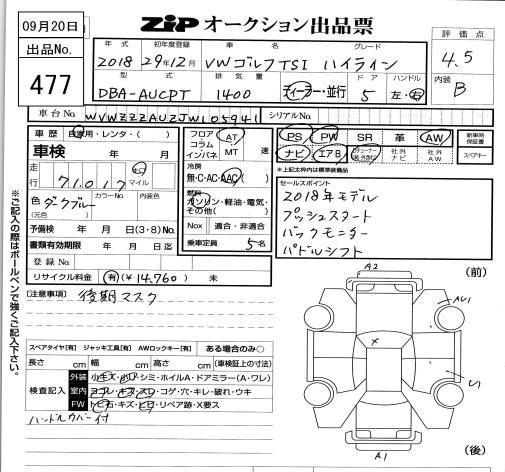 09月20日
出品No.
477
ZiP オークション出品票
評価点
4.5
内装
B
年式 初年度登録 車名 グレード
2018 29年12月 VWゴルフTSI ハイライン
型式 排気量 ドア ハンドル
DBA-AUCPT 1400 ディーラー・並行 5 左・右
車台No. WVWZZZAUZJW105941 シリアルNo.
車歴 自家用・レンタ・( )
車検 年 月
走行 71,017 キロ マイル
色 ダークブルー カラーNo. 内装色
(元色)
予備検 年 月 日(3・8)No.
書類有効期限 年 月 日迄
登録No.
リサイクル料金 有(¥14,760) 未
フロア コラム インパネ AT MT 速
冷房
無・C・AC・AAC
燃料
ガソリン・軽油・電気・その他( )
Nox 適合・非適合
乗車定員 5名
PS PW SR 革 AW 新車時保証書
ナビ エアB 社外ナビ 社外AW スペアキー
*上記太枠内は標準装備品
セールスポイント
2018年モデル
プッシュスタート
バックモニター
パドルシフト
【注意事項】 後期マスク
スペアタイヤ[有] ジャッキ工具[有] AWロックキー[有] ある場合のみ〇
長さ cm 幅 cm 高さ cm (車検証上の寸法)
検査記入
外装 小キズ・凹・シミ・ホイルA・ドアミラー(A・ワレ)
室内 ヨゴレ・キズ・スリ・コゲ・穴・キレ・破れ・ウキ
FW トビ石・キズ・ヒビ・リペア跡・X要ス
ハンドルカバー付
※ご記入の際はボールペンで強くご記入下さい。
(前)
A2
AU1
X
U1
A1
(後)